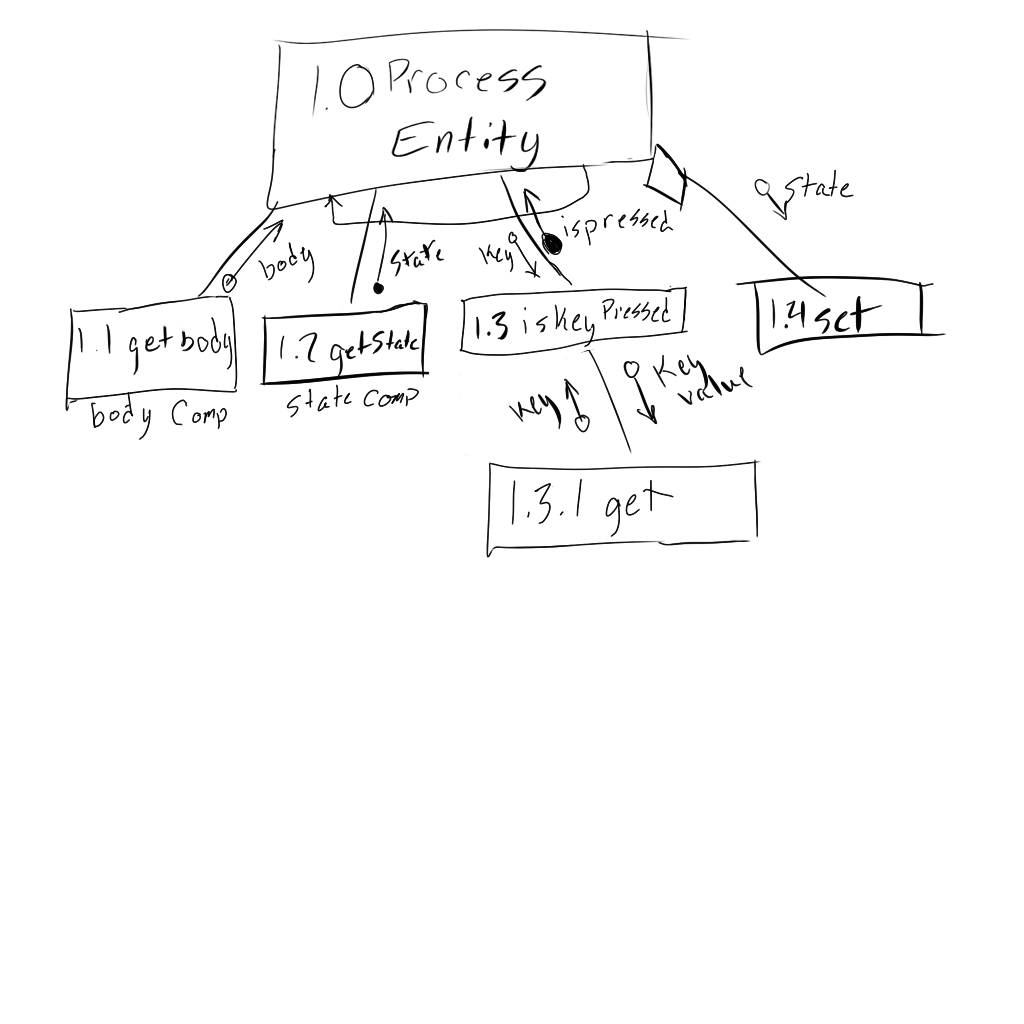 1.0 Process
Entity
body
state
key
ispressed
state
1.1 getbody
body Comp
1.2 getState
state Comp
1.3 iskey Pressed
1.4 set
key
Key
value
1.3.1 get